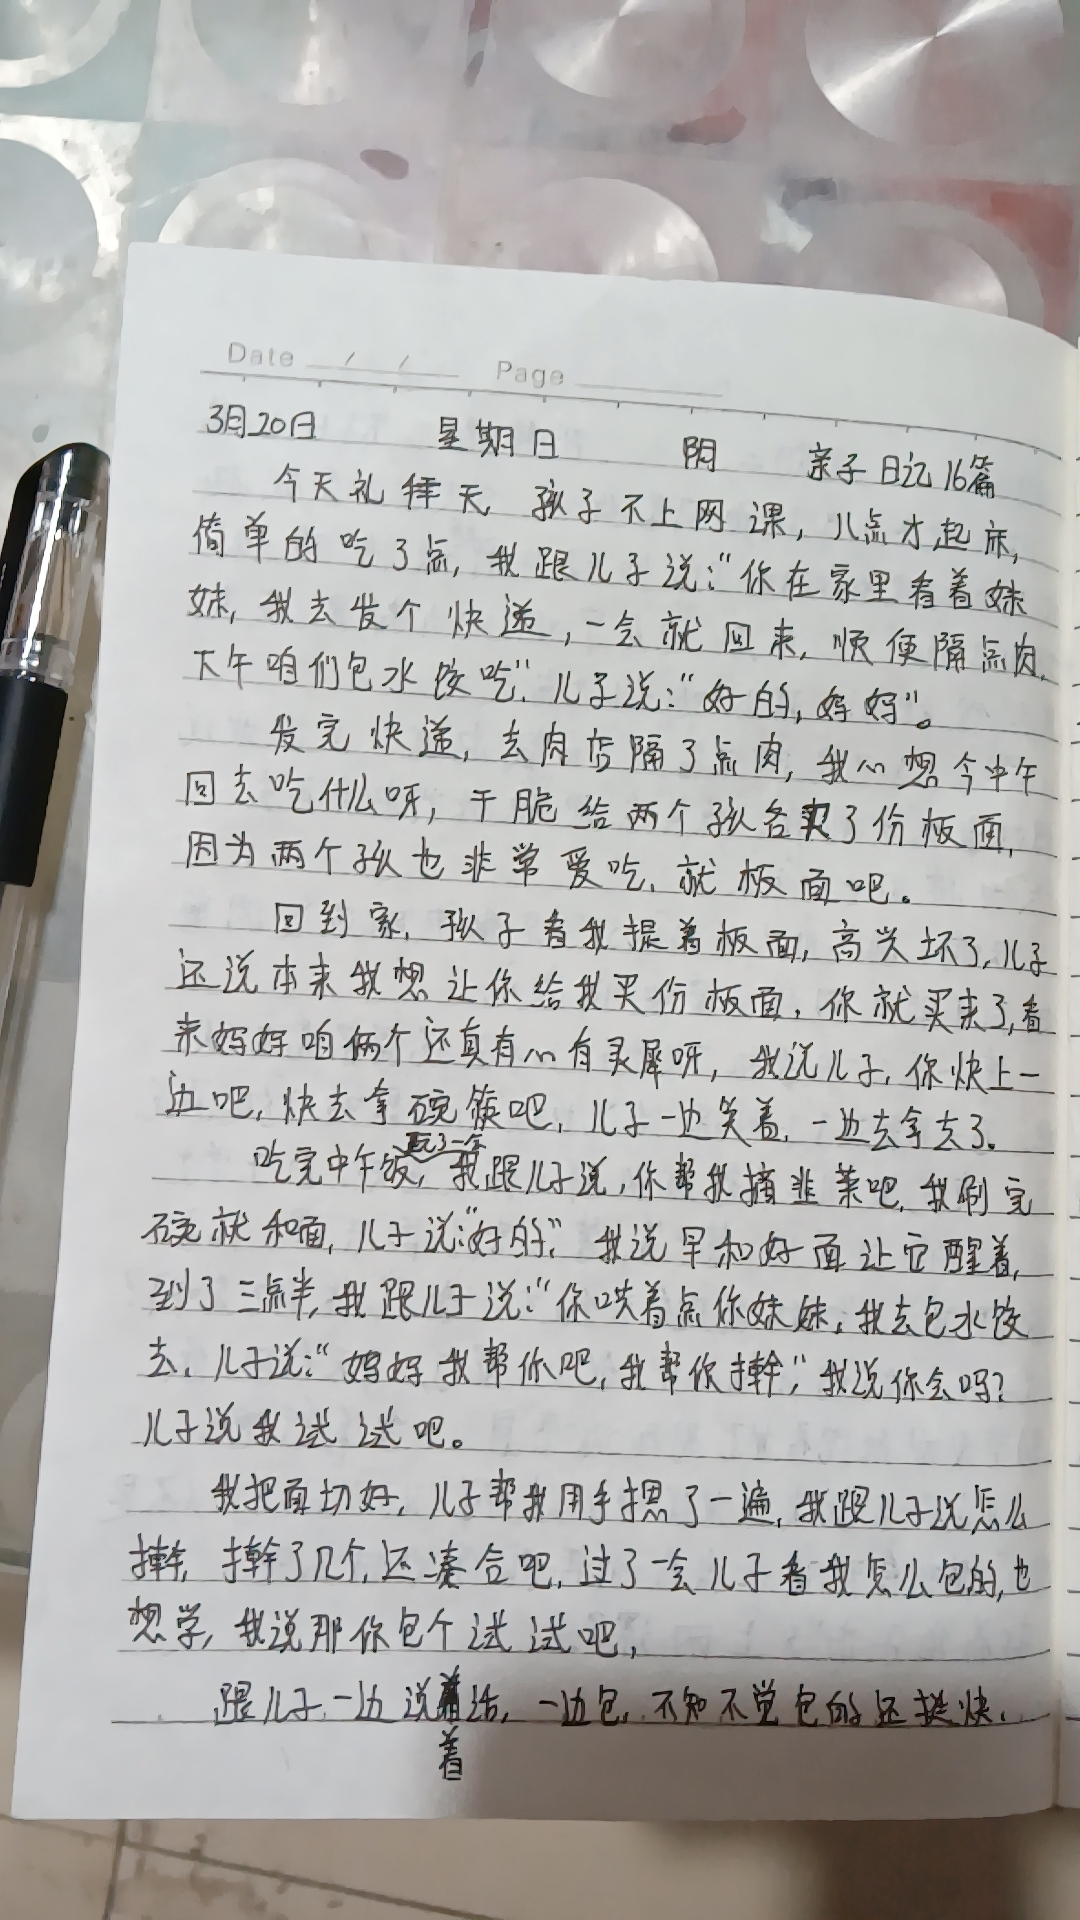 Date / / Page
3月20日 星期日 阴 亲子日记16篇
今天礼拜天,孩子不上网课,八点才起床,
简单的吃了点,我跟儿子说:“你在家里看着妹
妹,我去发个快递,一会就回来,顺便隔点肉,
下午咱们包水饺吃”,儿子说:“好的,妈妈”。
发完快递,去肉店隔了点肉,我心想今中午
回去吃什么呀,干脆给两个孩各买了份板面,
因为两个孩也非常爱吃,就板面吧。
回到家,孩子看我提着板面,高兴坏了,儿子
还说本来我想让你给我买份板面,你就买来了,看
来妈妈咱俩个还真有心有灵犀呀,我说儿子,你快上一
边吧,快去拿碗筷吧,儿子一边笑着,一边去拿去了。
玩了一会
吃完中午饭,我跟儿子说,你帮我摘韭菜吧,我刷完
碗就和面,儿子说:“好的,”我说早和好面让它醒着,
到了三点半,我跟儿子说:“你哄着点你妹妹,我去包水饺
去,儿子说:“妈妈我帮你吧,我帮你擀,”我说你会吗?
儿子说我试试吧。
我把面切好,儿子帮我用手摁了一遍,我跟儿子说怎么
擀,擀了几个,还凑合吧,过了一会儿子看我怎么包的,也
想学,我说那你包个试试吧,
跟儿子一边说话,一边包,不知不觉包的还挺快,
着